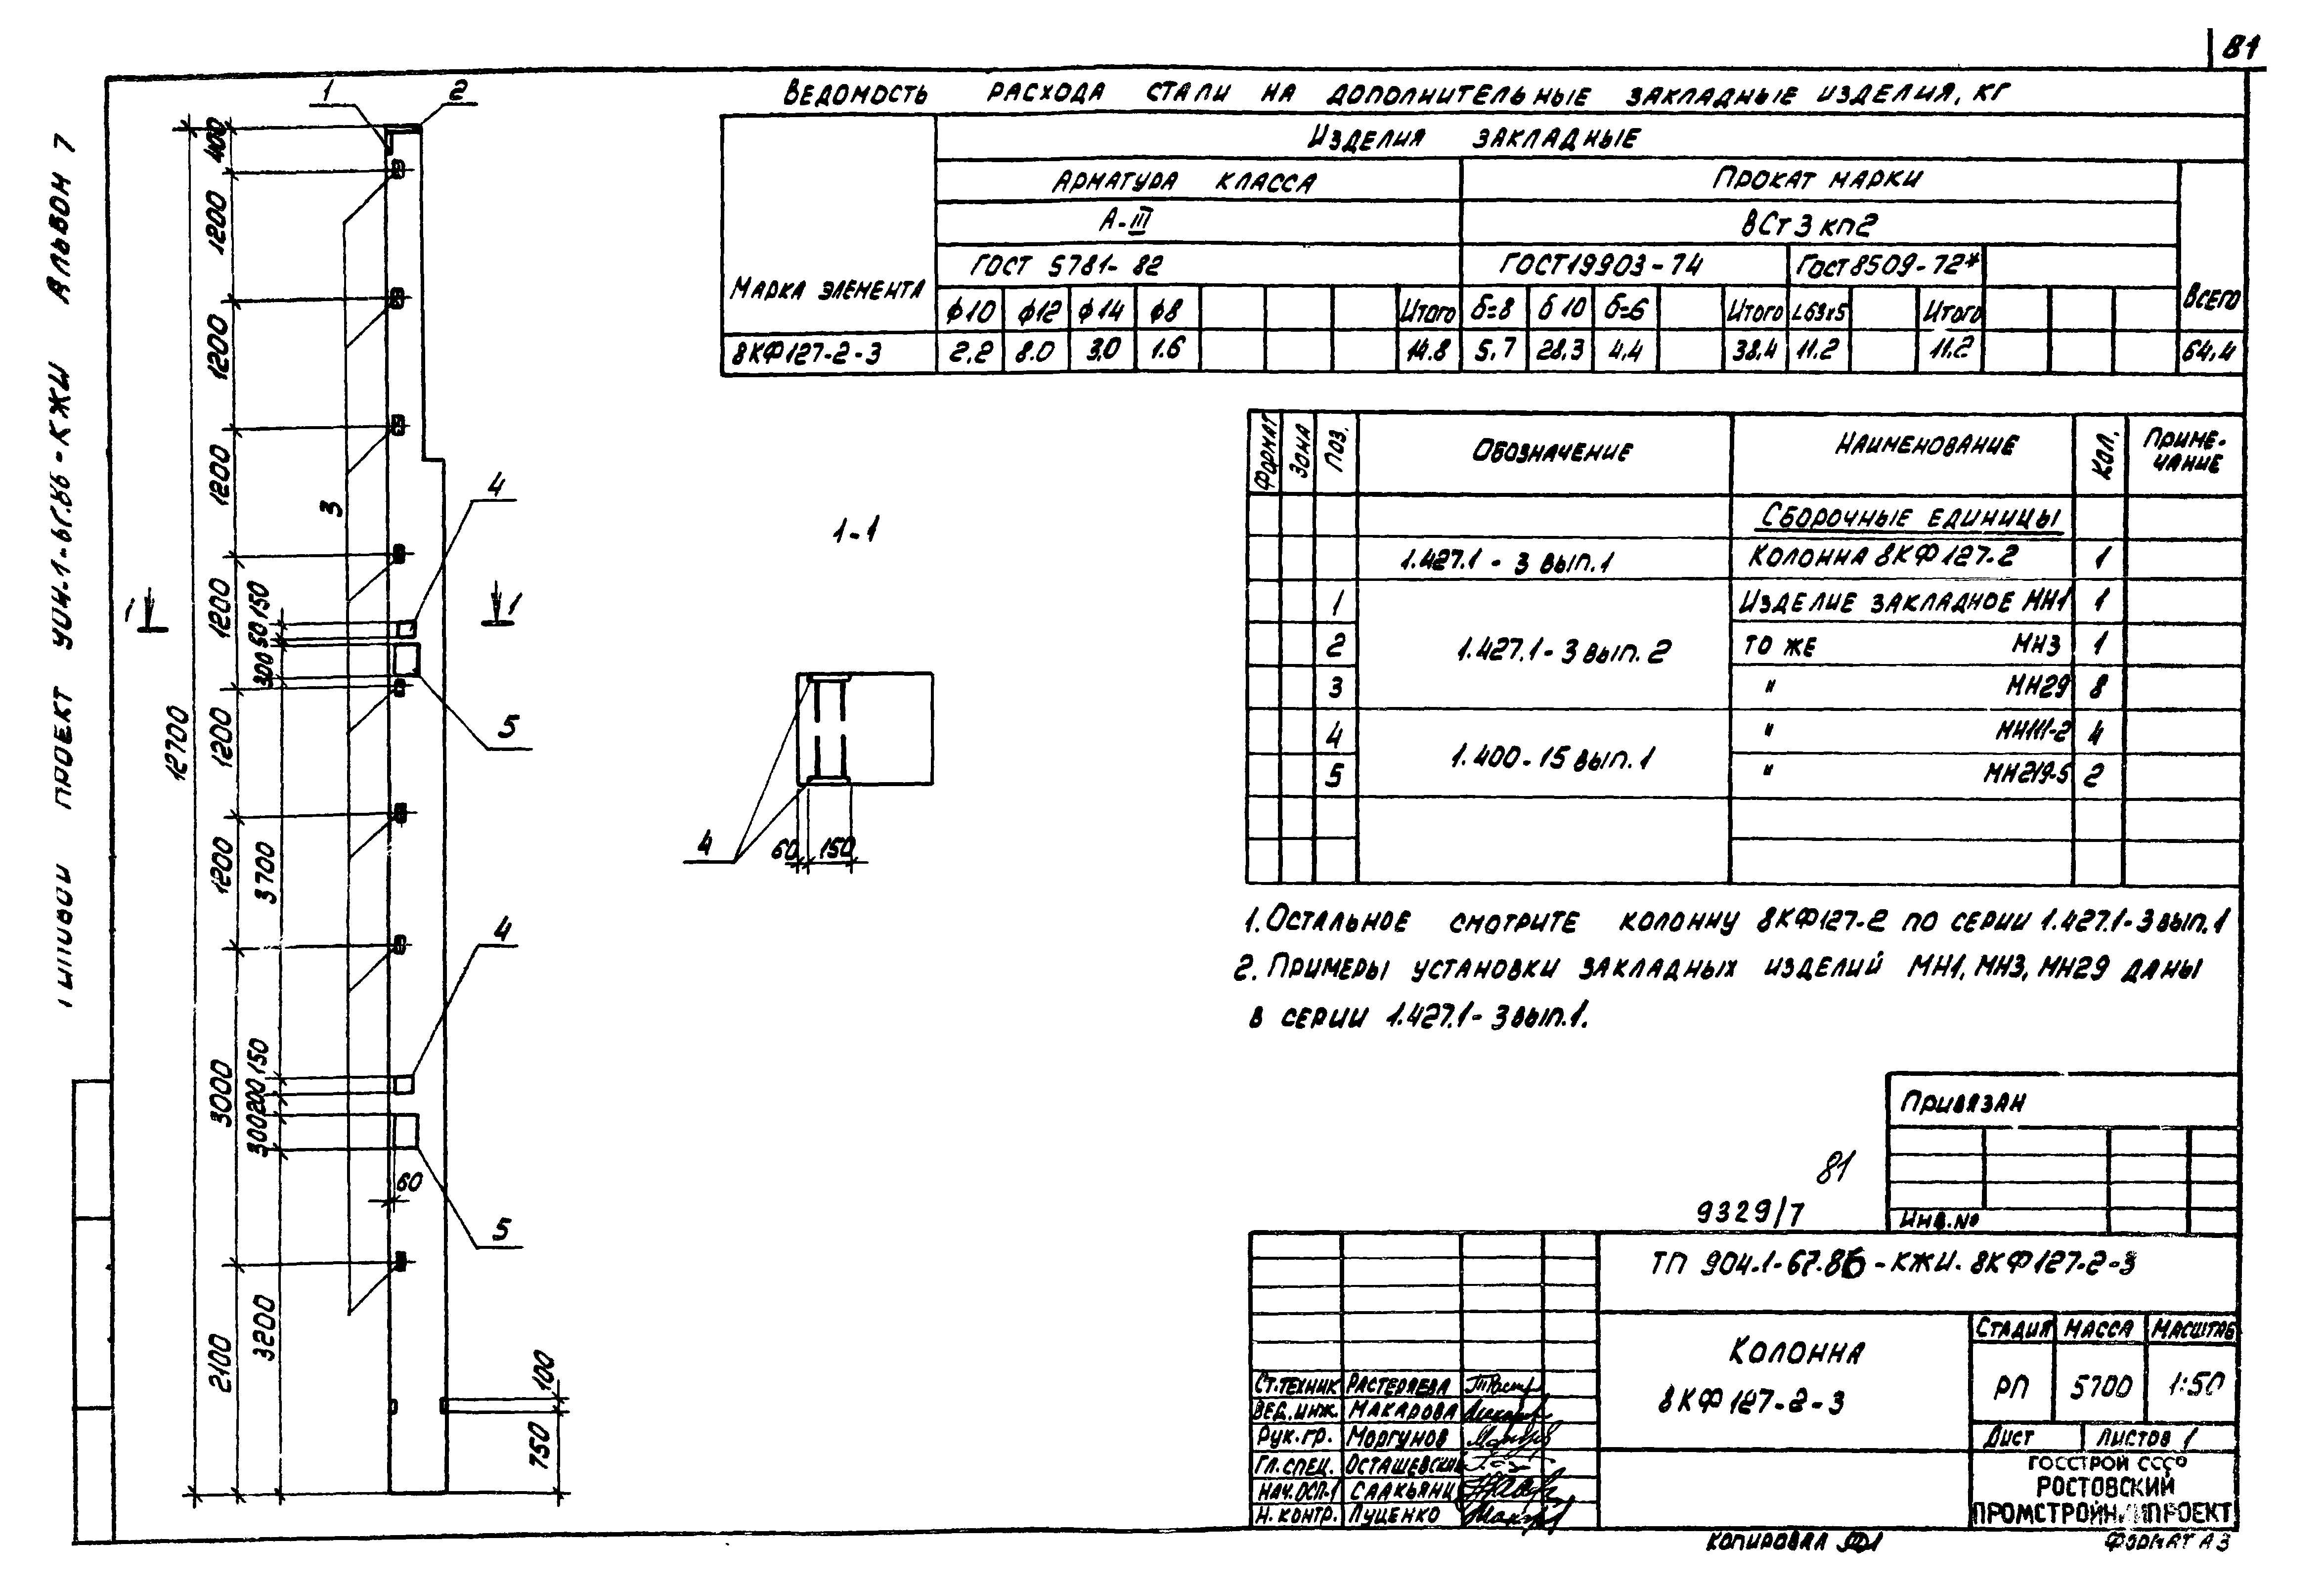 81
Типовой проект 904-1-67.86-КЖИ Альбом 7
Ведомость расхода стали на дополнительные закладные изделия, кг
Марка элемента
Изделия закладные
Арматура класса
Прокат марки
А-III
ВСт3кп2
ГОСТ 5781-82
ГОСТ 19903-74
ГОСТ 8509-72*
Всего
ф10 ф12 ф14 ф8 Итого δ=8 δ10 δ=6 Итого L63х5 Итого
8КФ127-2-3 2,2 8.0 3,0 1.6 14.8 5,7 28,3 4,4 38,4 11.2 11.2 64,4
1
2
400
1200
1200
1200
3
4
1
1
1200
150
60
300
12700
5
1200
1200
3700
4
3000
150
200
300
60
5
2100
3200
100
750
1-1
4
60
150
Формат Зона Поз. Обозначение Наименование Кол. Примечание
Сборочные единицы
1.427.1-3 вып.1 Колонна 8КФ127-2 1
1 Изделие закладное МН1 1
2 1.427.1-3 вып.2 То же МН3 1
3 " МН29 8
4 " МН111-2 4
1.400-15 вып.1
5 " МН219-5 2
1. Остальное смотрите колонну 8КФ127-2 по серии 1.427.1-3 вып.1
2. Примеры установки закладных изделий МН1, МН3, МН29 даны
в серии 1.427.1-3 вып.1.
Привязан
Инв.№
81
9329/7
ТП 904.1-67.86-КЖИ.8КФ127-2-3
Колонна
8КФ127-2-3
Стадия Масса Масштаб
РП 5700 1:50
Лист Листов 1
Ст.техник Растеряева
Вед.инж. Макарова
Рук.гр. Моргунов
Гл.спец. Осташевский
Нач.ОСП-1 Саакьянц
Н.контр. Луценко
ГОССТРОЙ СССР
РОСТОВСКИЙ
ПРОМСТРОЙНИИПРОЕКТ
Копировал
Формат А3